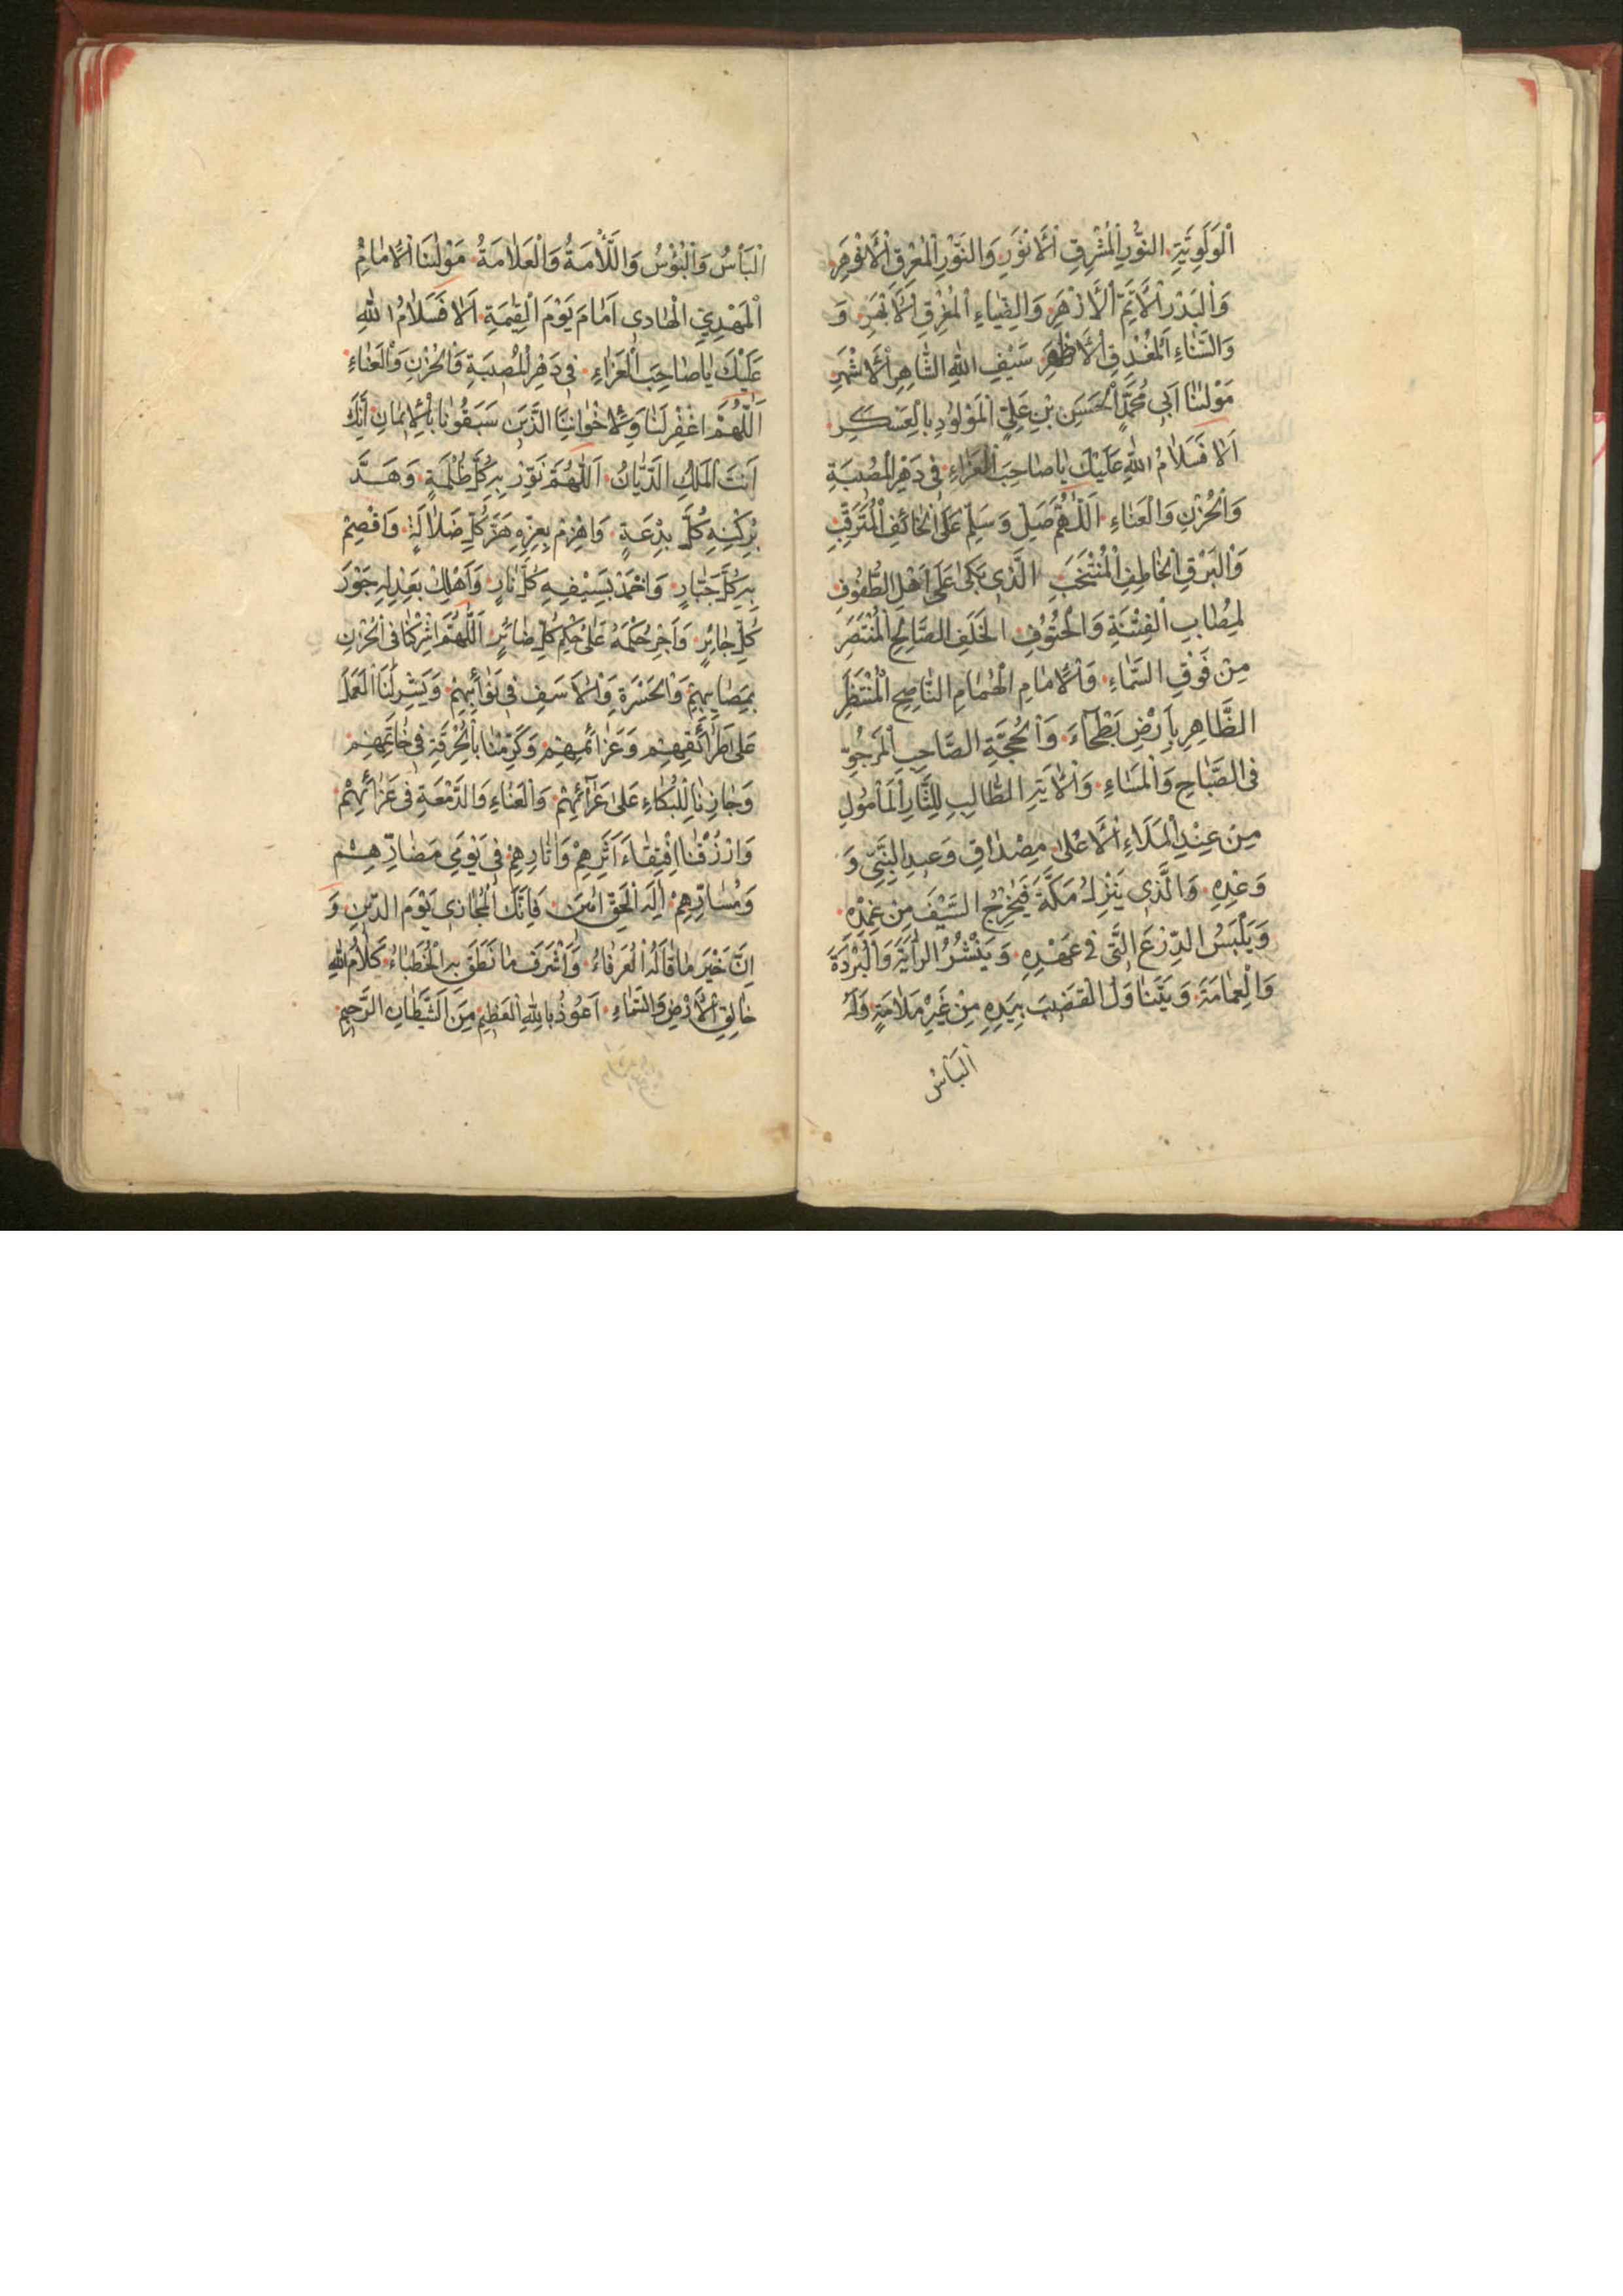 الْوَلَوِيَّةِ النُّورِ الْمُشْرِقِ الْأَنْوَرِ وَالنَّوْرِ الْمُعْرِقِ الْأَنْوَهِرِ
وَالْبَدْرِ الْأَتَمِّ الْأَزْهَرِ وَالضِّيَاءِ الْمُغْرِقِ الْأَبْهَرِ وَ
وَالسَّنَاءِ الْمُغْدِقِ الْأَظْهَرِ سَيْفِ اللهِ الشَّاهِرِ الْأَشْهَرِ
مَوْلٰنَا اَبِي مُحَمَّدٍ الْحَسَنِ بْنِ عَلِيٍّ الْمَوْلُودِ بِالْعَسْكَرِ
اَلَا فَسَلَامُ اللهِ عَلَيْكَ يَا صَاحِبَ الْعَزَاءِ فِي دَهْرِ الْمُصِيبَةِ
وَالْحُزْنِ وَالْعَنَاءِ اَللّٰهُمَّ صَلِّ وَسَلِّمْ عَلَى الْخَائِفِ الْمُتَرَقِّبِ
وَالْبَرْقِ الْخَاطِفِ الْمُنْتَخَبِ الَّذِي بَكَى عَلَى اَهْلِ الطُّفُوفِ
لِمُصَابِ الْفِتْنَةِ وَالْحُتُوفِ الْخَلَفِ الصَّالِحِ الْمُنْتَصَرِ
مِنْ فَوْقِ السَّمَاءِ وَالْاِمَامِ الْهُمَامِ النَّاصِحِ الْمُنْتَظَرِ
الظَّاهِرِ بِاَرْضِ بَطْحَاءَ وَالْحُجَّةِ الصَّاحِبِ الْمَرْجُوِّ
فِي الصَّبَاحِ وَالْمَسَاءِ وَالْاٰيَةِ الطَّالِبِ لِلثَّارِ الْمَأْمُولِ
مِنْ عِنْدِ الْمَلَاءِ الْأَعْلٰى مِصْدَاقِ وَعِيدِ النَّبِيِّ وَ
وَعْدِهِ وَالَّذِي يَنْزِلُ مَكَّةَ فَيُخْرِجُ السَّيْفَ مِنْ غِمْدِهِ
وَيَلْبَسُ الدِّرْعَ الَّتِي فِي عَهْدِهِ وَيَنْشُرُ الرَّايَةَ وَالْبُرْدَةَ
وَالْعِمَامَةَ وَيَتَنَاوَلُ الْقَضِيبَ بِيَدِهِ مِنْ غَيْرِ مَلَامَةٍ وَلَهُ
الْبَأْسُ
الْبَأْسُ وَالْبُؤْسُ وَاللَّأْمَةُ وَالْعَلَامَةُ مَوْلٰنَا الْاِمَامُ
الْمَهْدِيُّ الْهَادِي اَمَامَ يَوْمَ الْقِيٰمَةِ اَلَا فَسَلَامُ اللهِ
عَلَيْكَ يَا صَاحِبَ الْعَزَاءِ فِي دَهْرِ الْمُصِيبَةِ وَالْحُزْنِ وَالْعَنَاءِ
اَللّٰهُمَّ اغْفِرْ لَنَا وَلِاِخْوَانِنَا الَّذِينَ سَبَقُونَا بِالْاِيمَانِ اِنَّكَ
اَنْتَ الْمَلِكُ الدَّيَّانُ اَللّٰهُمَّ نَوِّرْ بِهِ كُلَّ ظُلْمَةٍ وَهَدَّ
بِرُكْنِهِ كُلَّ بِدْعَةٍ وَاهْزِمْ بِعِزِّهِ هَزَّ كُلِّ ضَلَالَةٍ وَاقْصِمْ
بِهِ كُلَّ جَبَّارٍ وَاخْمَدْ بِسَيْفِهِ كُلَّ نَارٍ وَاَهْلِكْ بِعَدْلِهِ جَوْرَ
كُلِّ جَائِرٍ وَاَجْرِ حُكْمَهُ عَلَى حُكْمِ كُلِّ ضَائِرٍ اَللّٰهُمَّ اشْرِكْنَا فِي الْحُزْنِ
بِمَصَايِبِهِمْ وَالْحَسْرَةِ وَالْاَسَفِ فِي نَوَائِبِهِمْ وَيَسِّرْ لَنَا الْعَمَلَ
عَلَى طَرَائِقِهِمْ وَعَزَائِمِهِمْ وَكَرِّمْنَا بِالْحُرْقَةِ فِي خَاتَمِهِمْ
وَجَازِنَا لِلْبُكَاءِ عَلَى عَزَائِهِمْ وَالْعَنَاءِ وَالدَّمْعَةِ فِي عَزَائِهِمْ
وَارْزُقْنَا اقْتِفَاءَ اَثَرِهِمْ وَاٰثَارِهِمْ فِي يَوْمَيْ مَضَارِّهِمْ
وَمَسَارِّهِمْ اِلٰهَ الْحَقِّ اٰمِينَ فَاِنَّكَ الْمُجَازِي يَوْمَ الدِّينِ وَ
اِنَّ خَيْرَ مَا قَالَهُ الْعُرَفَاءُ وَاَشْرَفَ مَا نَطَقَ بِهِ الْخُطَبَاءُ كَلَامُ اللهِ
خَالِقِ الْأَرْضِ وَالسَّمَاءِ اَعُوذُ بِاللهِ الْعَظِيمِ مِنَ الشَّيْطَانِ الرَّجِيمِ